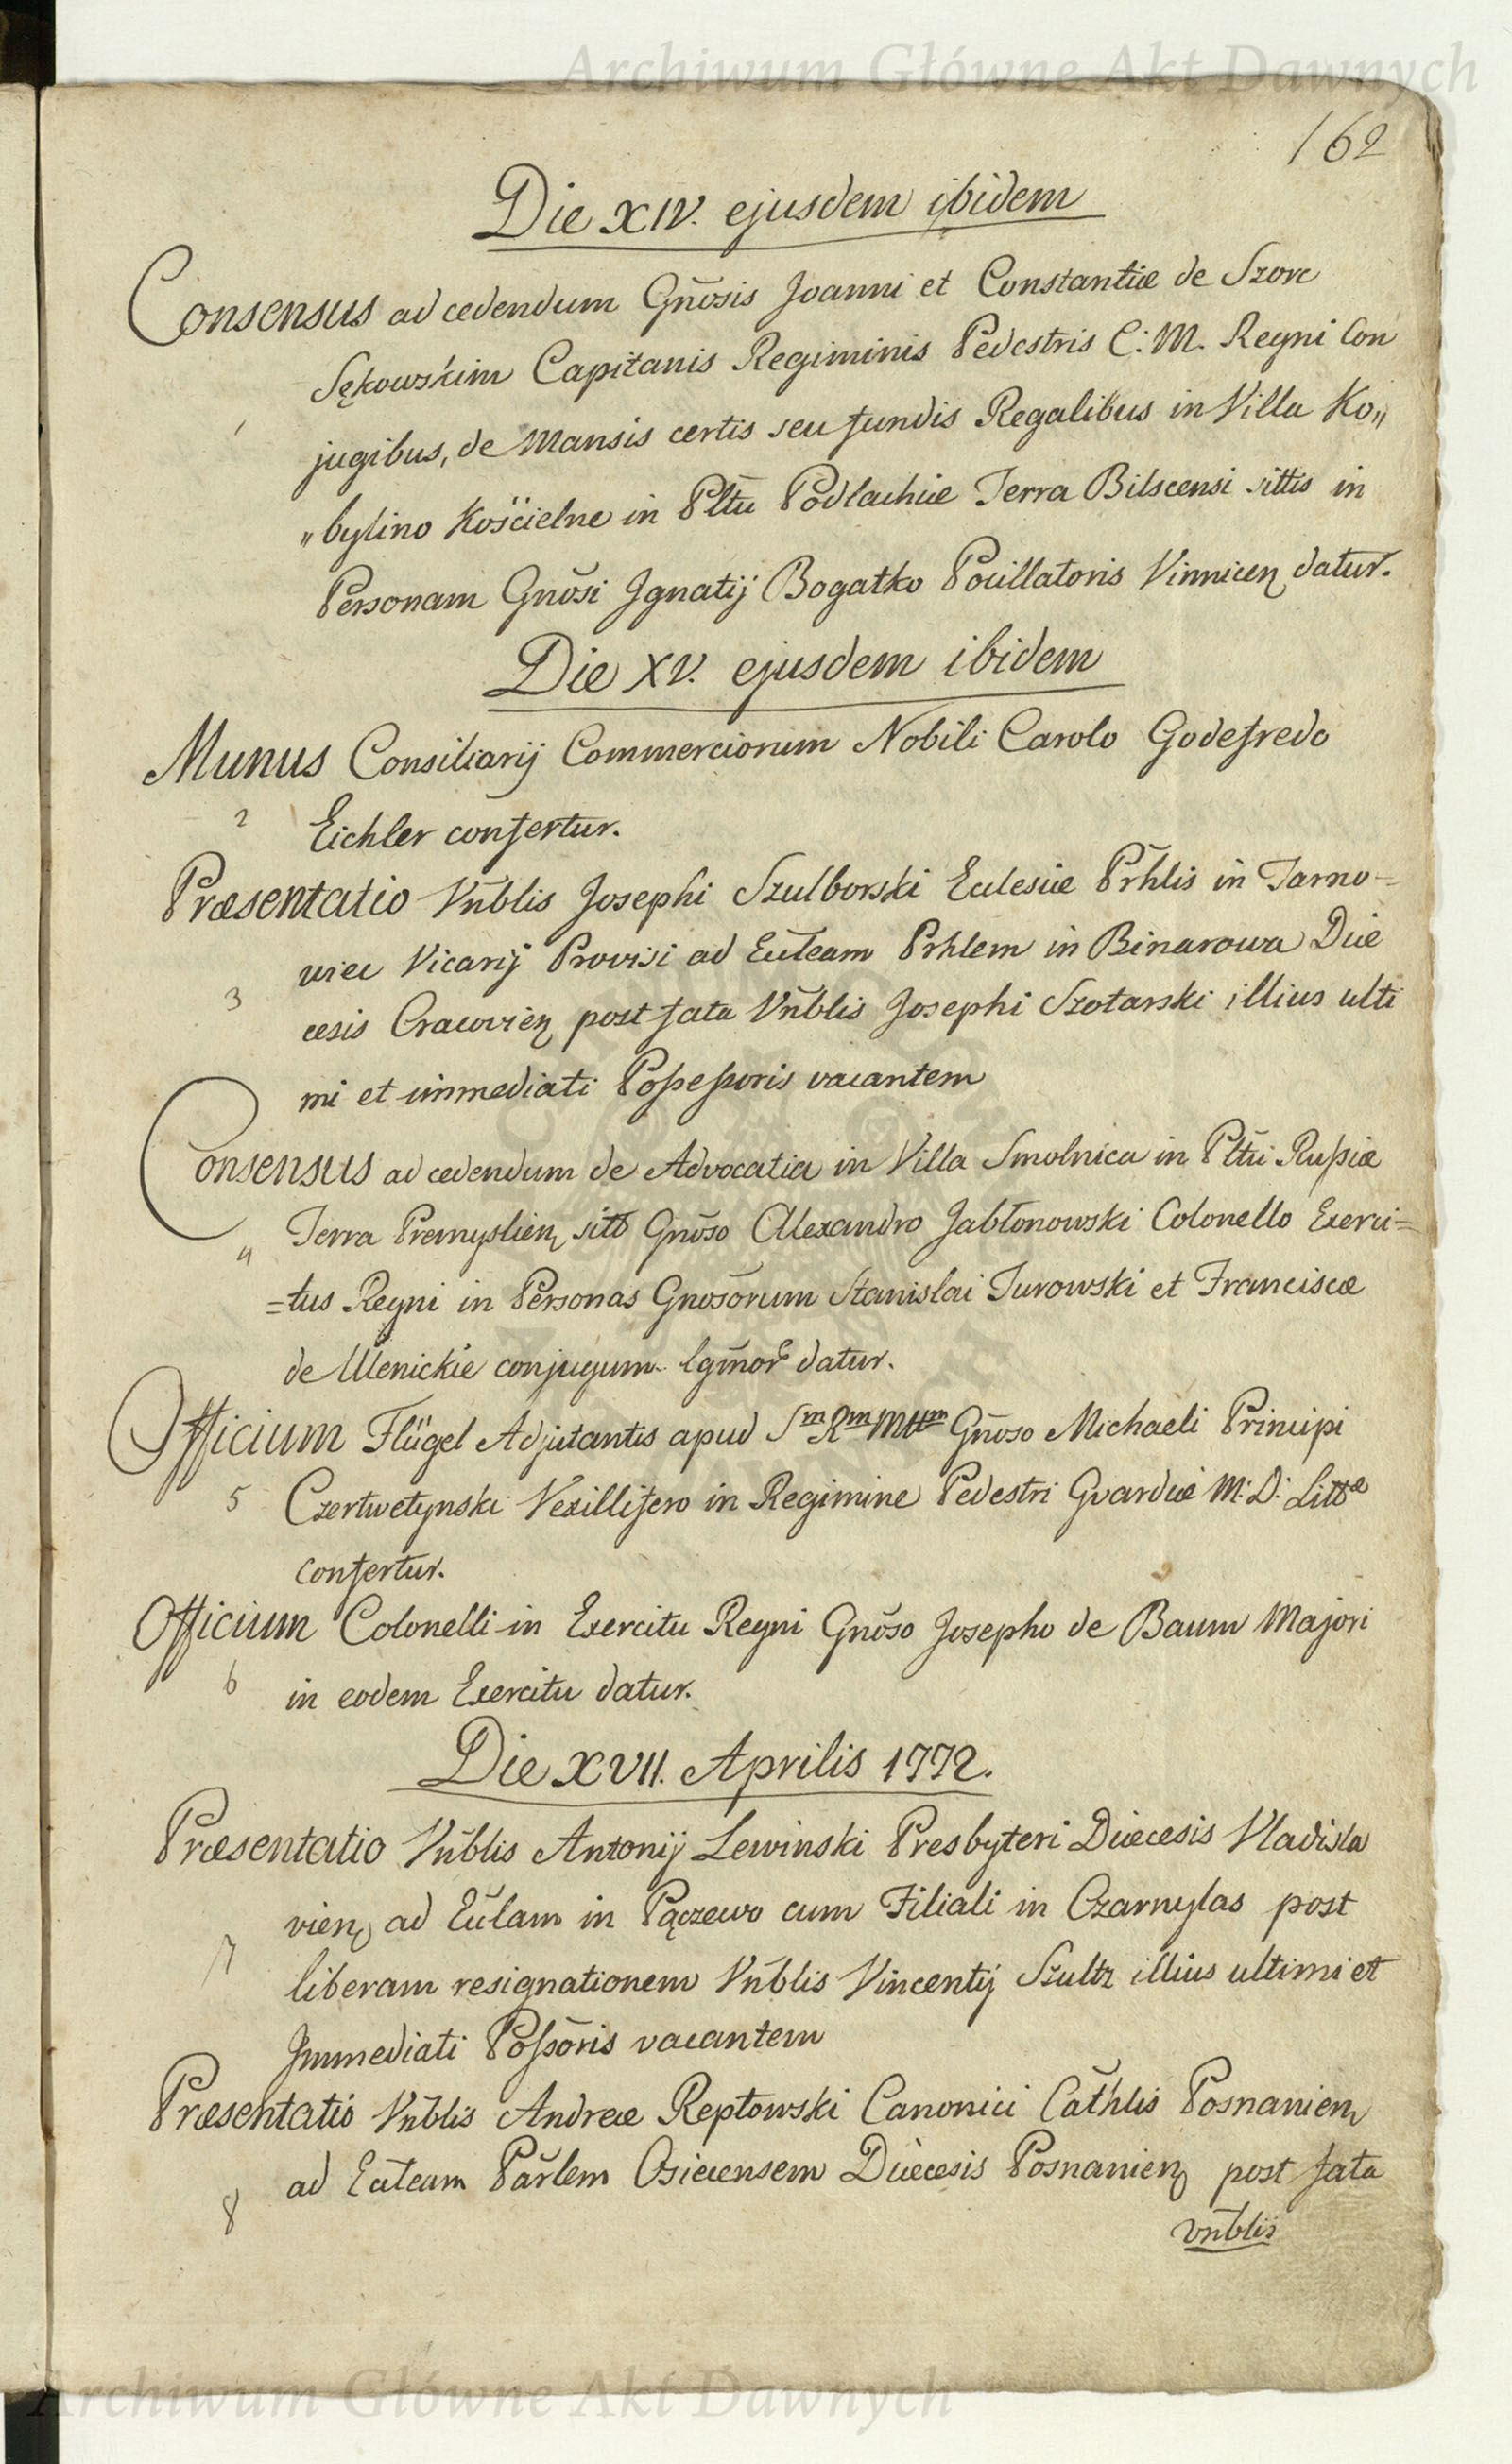 Archiwum Główne Akt Dawnych
162
Die XIV. ejusdem ibidem
Consensus ad cedendum Gn̄osis Joanni et Constantiæ de Szorc
Sękowskim Capitanis Regiminis Pedestris C: M. Regni Con
1
jugibus, de Mansis certis seu fundis Regalibus in Villa Ko„
„bylino Kościelne in Pltu Podlachiæ Terra Bilscensi sittis in
Personam Gnōsi Ignatij Bogatko Pocillatoris Vinnicen datur.
Die XV. ejusdem ibidem
Munus Consiliarij Commerciorum Nobili Carolo Godefredo
2 Eichler confertur.
Præsentatio Vn̄blis Josephi Szulborski Ecclesiæ Prhlis in Tarno-
wiec Vicarij Provisi ad Eccleam Prhlem in Binarowa Diæ
3
cesis Cracovien post fata Vn̄blis Josephi Szotarski illius ulti
mi et immediati Possessoris vacantem
Consensus ad cedendum de Advocatia in Villa Smolnica in Pltū Russiæ
4 Terra Premyslien sitt Gnōso Alexandro Jabłonowski Colonello Exerci=
=tus Regni in Personas Gnosōrum Stanislai Turowski et Franciscæ
de Ulenickie conjugum Lgmor datur.
Officium Flügel Adjutantis apud Sm Rm Mttm Gn̄oso Michaeli Principi
5 Czertwetynski Vexillifero in Regimine Pedestri Gvardiæ M: D: Litt æ
confertur.
Officium Colonelli in Exercitu Regni Gnōso Josepho de Baum Majori
6 in eodem Exercitu datur.
Die XVII. Aprilis 1772.
Præsentatio Vn̄blis Antonij Lewinski Presbyteri Diæcesis Vladisla
vien ad Ecclam in Pączewo cum Filiali in Czarnylas post
7
liberam resignationem Vn̄blis Vincentij Szultz illius ultimi et
Immediati Possōris vacantem
Præsentatio Vn̄blis Andreæ Reptowski Canonici Cathlis Posnanien
ad Eccleam Parlem Osiecensem Diæcesis Posnanien post fata
8
Vn̄blis
Archiwum Główne Akt Dawnych